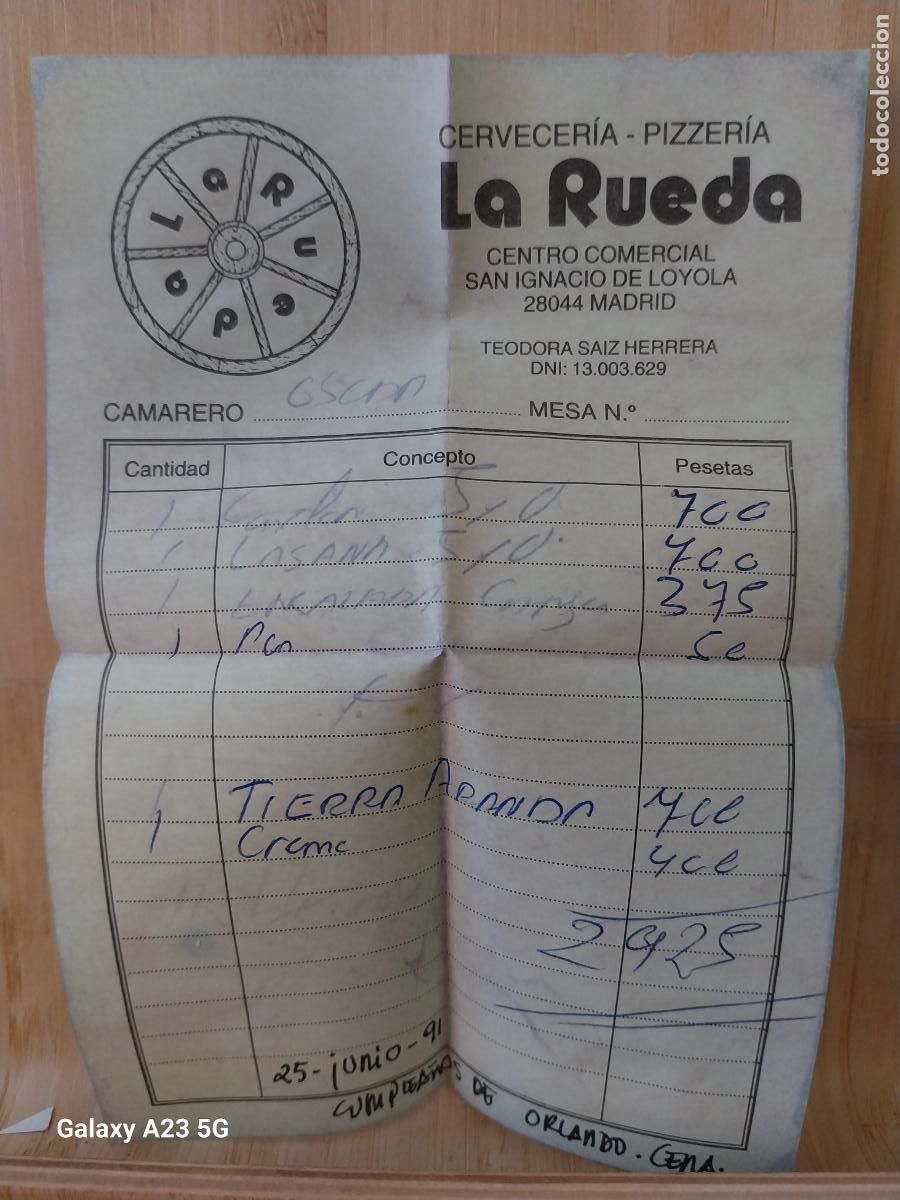 todocoleccion
La Rueda
CERVECERÍA - PIZZERÍA
La Rueda
CENTRO COMERCIAL
SAN IGNACIO DE LOYOLA
28044 MADRID
TEODORA SAIZ HERRERA
DNI: 13.003.629
CAMARERO MESA N.º
Cantidad Concepto Pesetas
1 700
1 LASANA 700
1 375
1 Pan 50
1 TIERRA ARANDA 700
1 Creme 400
2925
25-junio-91
CUMPLEAÑOS DE ORLANDO. CENA.
Galaxy A23 5G